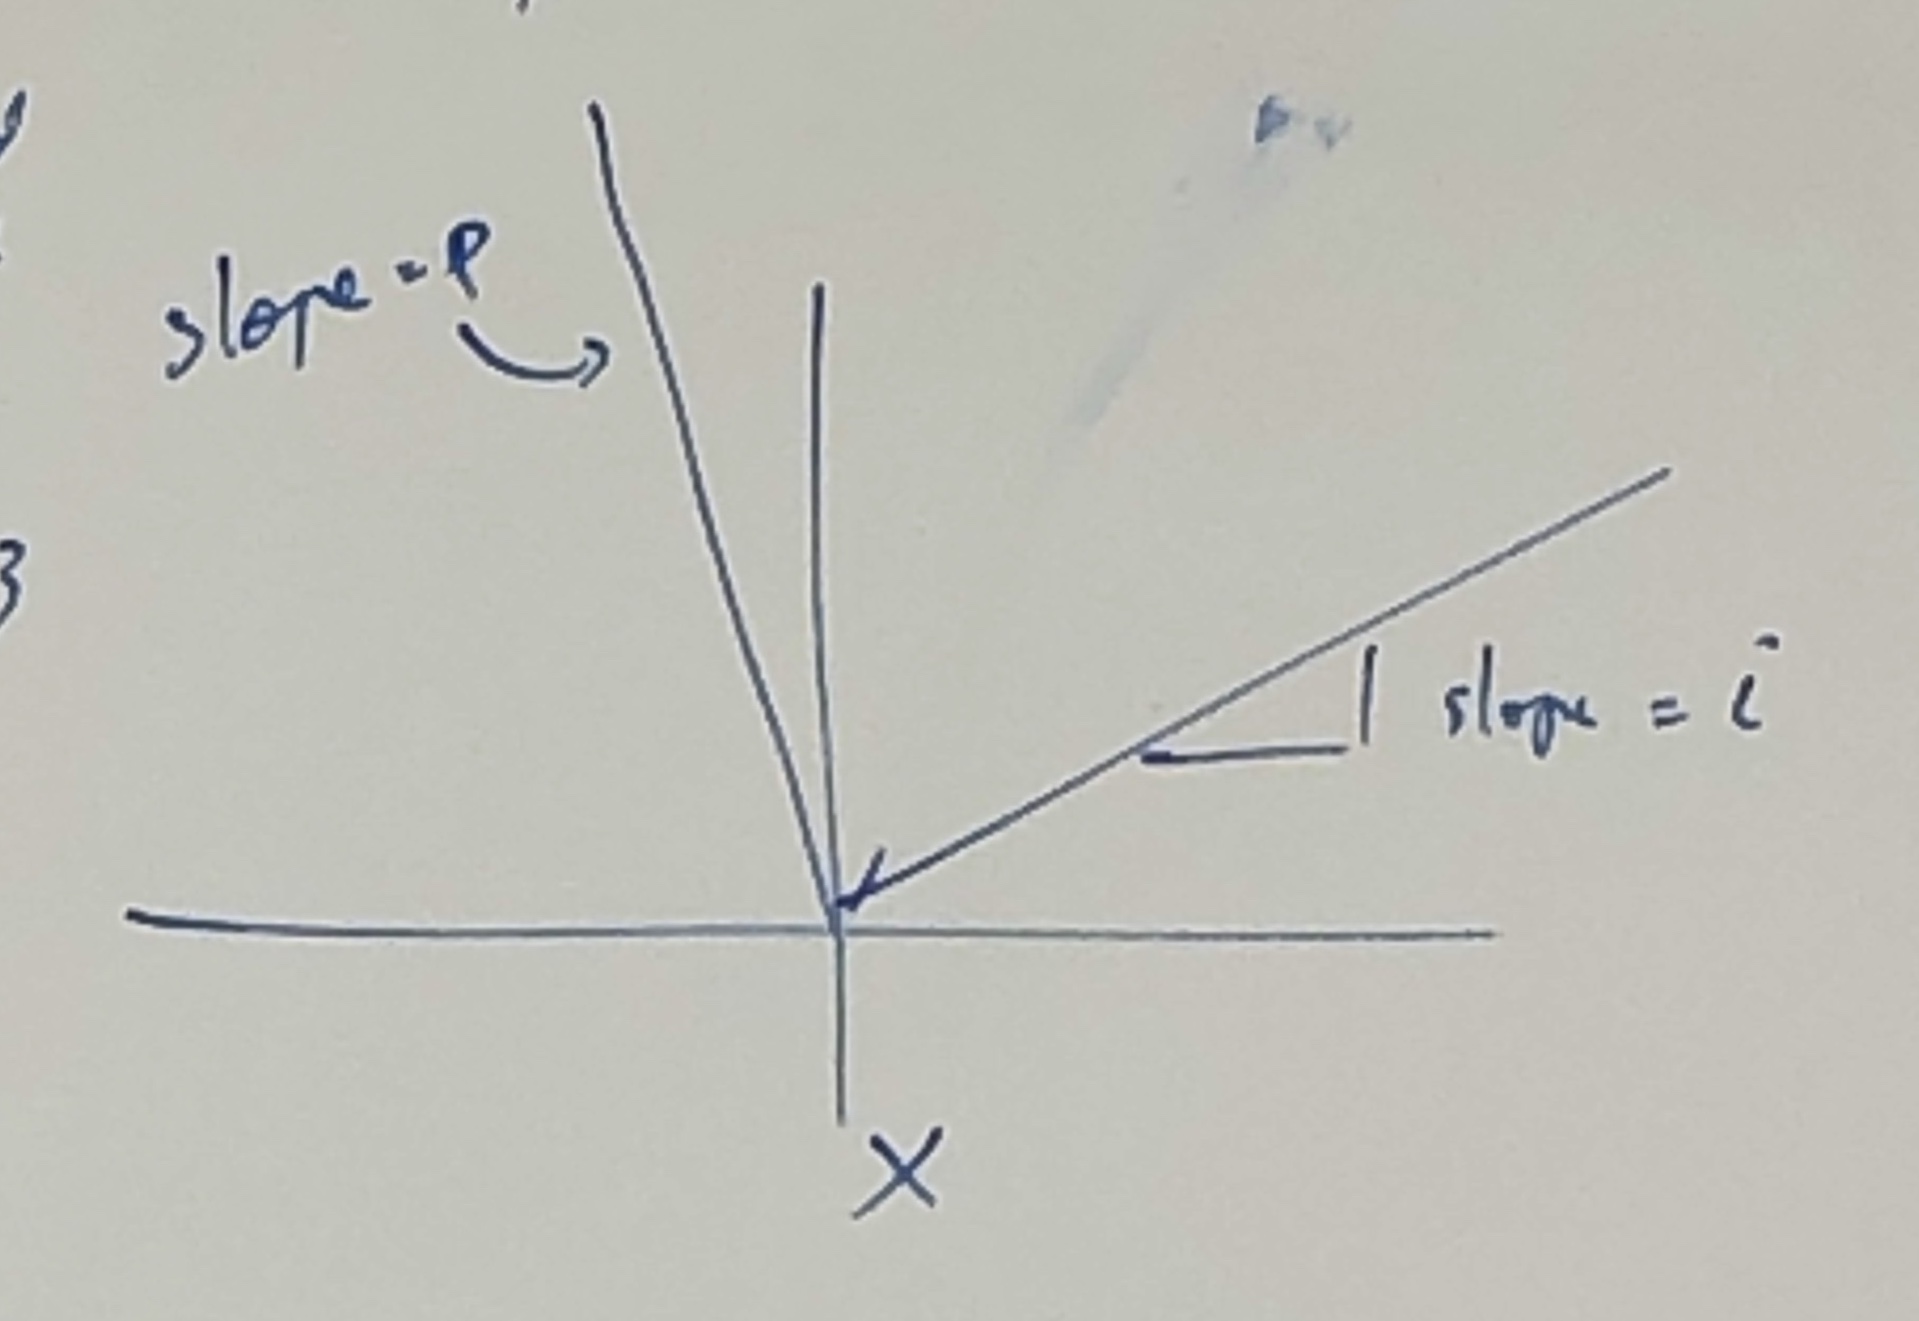 slope = P
slope = i
X
3